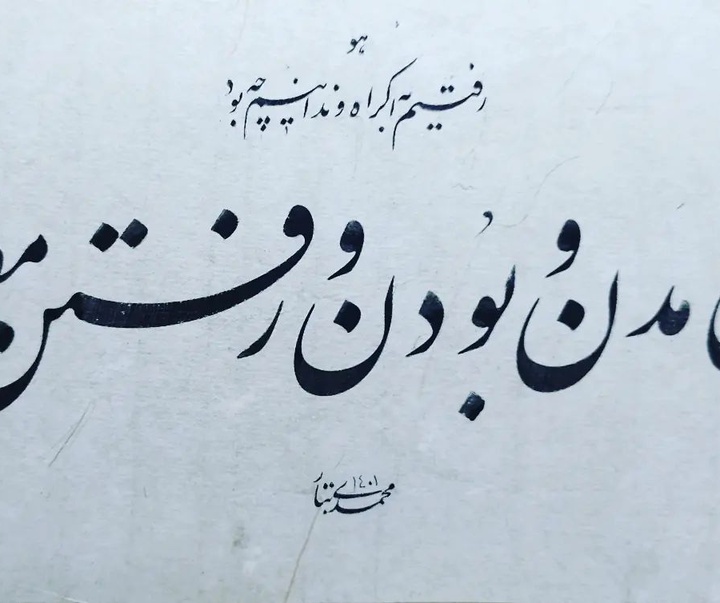 هو
رفتیم به اکراه و ندانیم چه بود
مدن و بودن و رفتن
۱۴۰۱
محمدی تبار